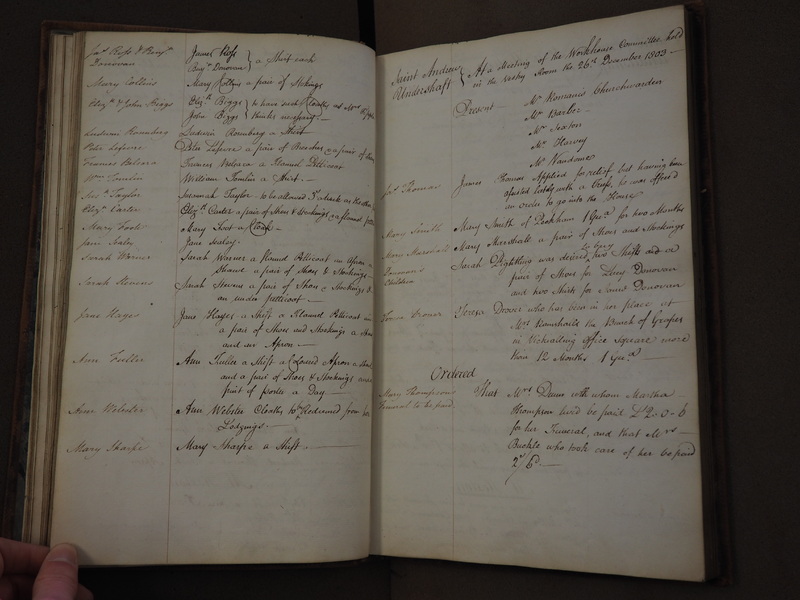 Jas. Ross & Benj.n Donovan
James Ross
Benj.n Donovan } a Shirt each
Mary Collins Mary Collins a pair of Stockings
Eliz.th & John Biggs Eliz.th Biggs
John Biggs } to have such Cloaths as
thinks necessary.
Ludwin Rosenberg Ludwin Rosenberg a Shirt
Peter Lefevre Peter Lefevre a pair of Breeches & a pair of
Frances Frances a Flannel Petticoat
Wm. Tomlin William Tomlin a Shirt.
Sus.h Taylor Susannah Taylor to be allowed
Eliz.th Carter Eliz.th Carter a pair of Shoes & Stockings & a flannel
Mary Foot Mary Foot a Cloak
Jane Sealey Jane Sealey
Sarah Warner Sarah Warner a Flannel Petticoat an Apron a
Shawl a pair of Shoes & Stockings
Sarah Stevens Sarah Stevens a pair of Shoes & Stockings &
an under petticoat
Jane Hayes Jane Hayes a Shift a Flannel Petticoat
a pair of Shoes and Stockings a
and an Apron
Ann Fuller Ann Fuller a Shift a Coloured Apron a
and a pair of Shoes & Stockings and a
pint of Porter a Day
Ann Webster Ann Webster Cloaths to be Redeemed from her
Lodgings.
Mary Sharpe Mary Sharpe a Shift
Saint Andrew
Undershaft } At a Meeting of the Workhouse Committee held
in the Vestry Room the 26th December 1803
Present Mr Romanis Churchwarden
Mr Barber
Mr Sexton
Mr Harvey
Mr
Jas. Thomas James Thomas Applied for relief but having been
afflicted lately with a he was offer'd
an order to go into the House
Mary Smith Mary Smith of Peckham 1 Gua for two Months
Mary Marshall Mary Marshall a pair of Shoes and Stockings
Donovan's
Children Sarah was desired to buy two Shifts and a
pair of Shoes for Donovan
and two Shirts for James Donovan
Teresa who has been in her place at
Mrs the of
in Victualling Office Square more
than 12 Months 1 Gua
Ordered
Mary Thompson's
Funeral to be paid That Mrs with whom Martha
Thompson liv'd be paid £2-0-6
for her Funeral, and that Mrs
Buckle who took care of her be paid
2/6